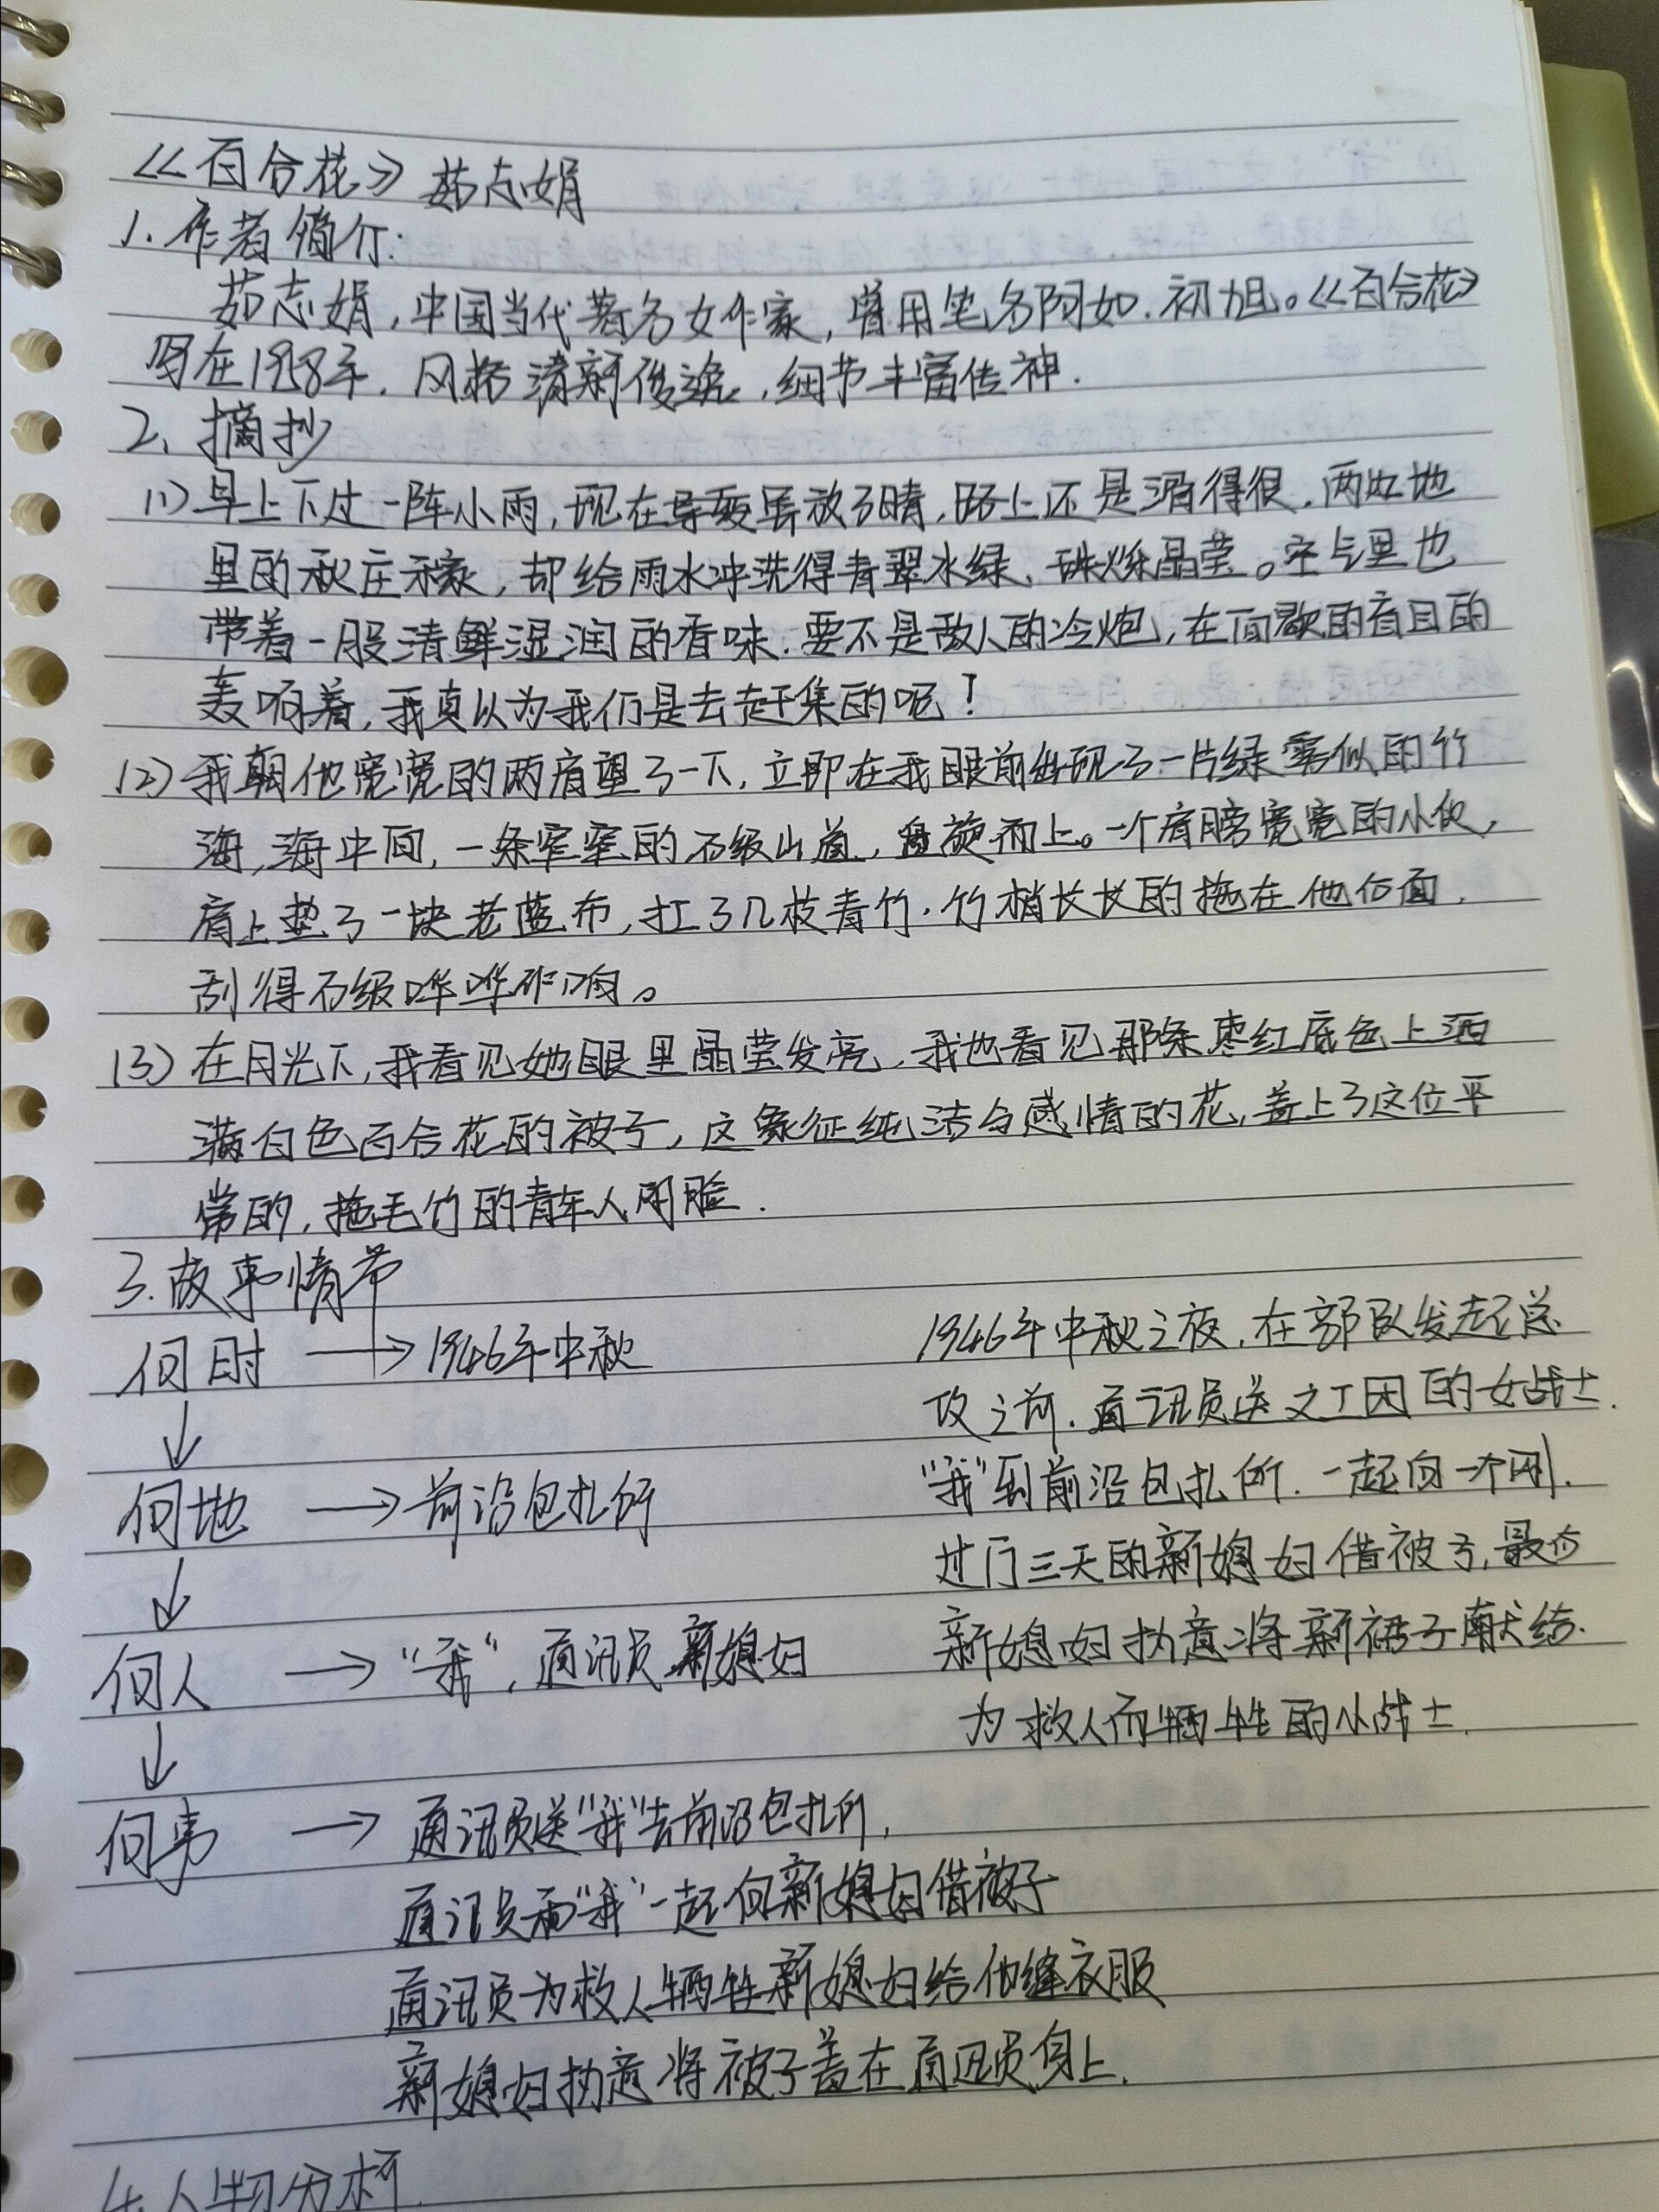 《百合花》 茹志娟
1. 作者简介：
茹志娟，中国当代著名女作家，曾用笔名阿如、初旭。《百合花》
写在1958年，风格清新俊逸，细节丰富传神.
2、摘抄
(1) 早上下过一阵小雨，现在虽放了晴，路上还是滑得很，两边地
里的秋庄稼，却给雨水冲洗得青翠水绿、珠烁晶莹。空气里也
带着一股清鲜湿润的香味.要不是敌人的冷炮，在间歇的盲目的
轰响着，我真以为我们是去赶集的呢！
(2) 我朝他宽宽的两肩望了一下，立即在我眼前出现了一片绿雾似的竹
海，海中间，一条窄窄的石级山道，盘旋而上。一个肩膀宽宽的小伙，
肩上垫了一块老蓝布，扛了几枝青竹，竹梢长长的拖在他后面，
刮得石级哗哗作响。
(3) 在月光下，我看见她眼里晶莹发亮，我也看见那条枣红底色上洒
满白色百合花的被子，这象征纯洁与感情的花，盖上了这位平
常的，拖毛竹的青年人的脸.
3.故事情节
何时 → 1946年中秋
↓
何地 → 前沿包扎所
↓
何人 → “我”，通讯员 新媳妇
↓
何事 → 通讯员送“我”去前沿包扎所，
通讯员和“我”一起向新媳妇借被子
通讯员为救人牺牲新媳妇给他缝衣服
新媳妇执意将被子盖在通讯员身上.
1946年中秋之夜，在部队发起总
攻之前.通讯员送文工团的女战士.
“我”到前沿包扎所.一起向一个刚.
过门三天的新媳妇借被子，最后
新媳妇执意将新被子献给.
为救人而牺牲的小战士.
4.人物分析.